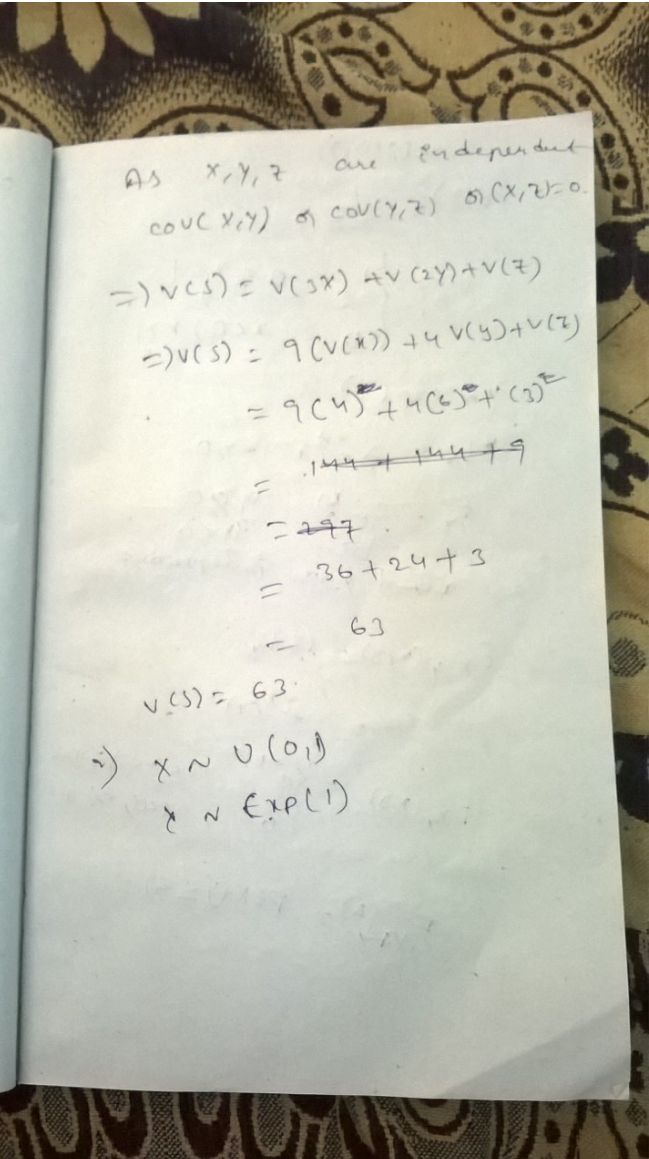 As X, Y, Z are independent
COV(X,Y) or COV(Y,Z) or (X,Z)=0.
=) V(S) = V(3X) + V(2Y) + V(Z)
=) V(S) = 9(V(X)) + 4 V(Y) + V(Z)
= 9(4) + 4(6) + (3)
= 144 + 144 + 9
= 297
= 36 + 24 + 3
= 63
V(S) = 63
2) X ~ U(0,1)
Y ~ Exp(1)